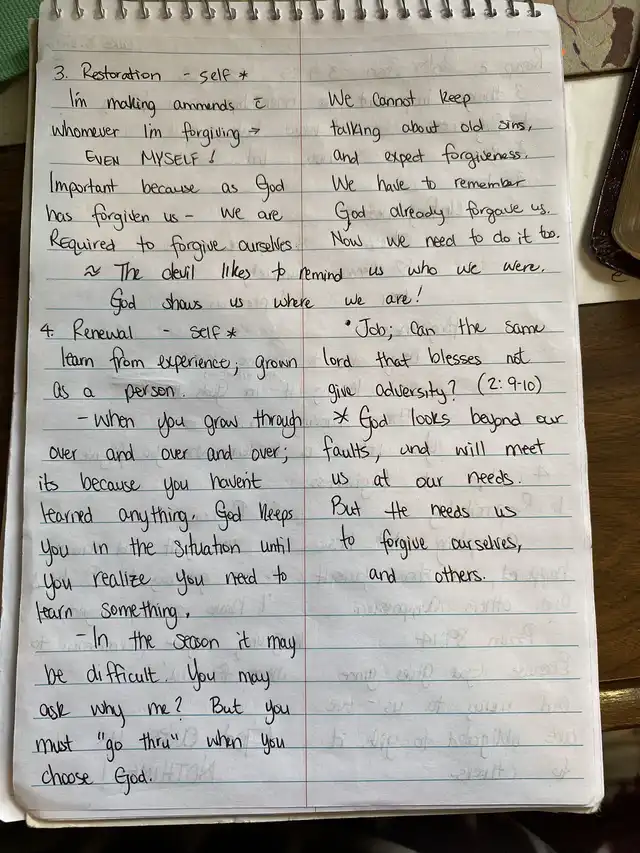 3. Restoration - self *
I'm making ammends c̄
whomever I'm forgiving →
EVEN MYSELF!
Important because as God
has forgiven us - we are
Required to forgive ourselves.
We cannot keep
talking about old sins,
and expect forgiveness.
We have to remember
God already forgave us.
Now we need to do it too.
≈ The devil likes to remind us who we were.
God shows us where we are!
4. Renewal - self *
learn from experience; grown
as a person.
- When you grow through
over and over and over;
its because you haven't
learned anything. God keeps
you in the situation until
you realize you need to
learn something.
- In the season it may
be difficult. You may
ask why me? But you
must "go thru" when you
choose God.
• Job; Can the same
lord that blesses not
give adversity? (2:9-10)
* God looks beyond our
faults, and will meet
us at our needs.
But He needs us
to forgive ourselves,
and others.